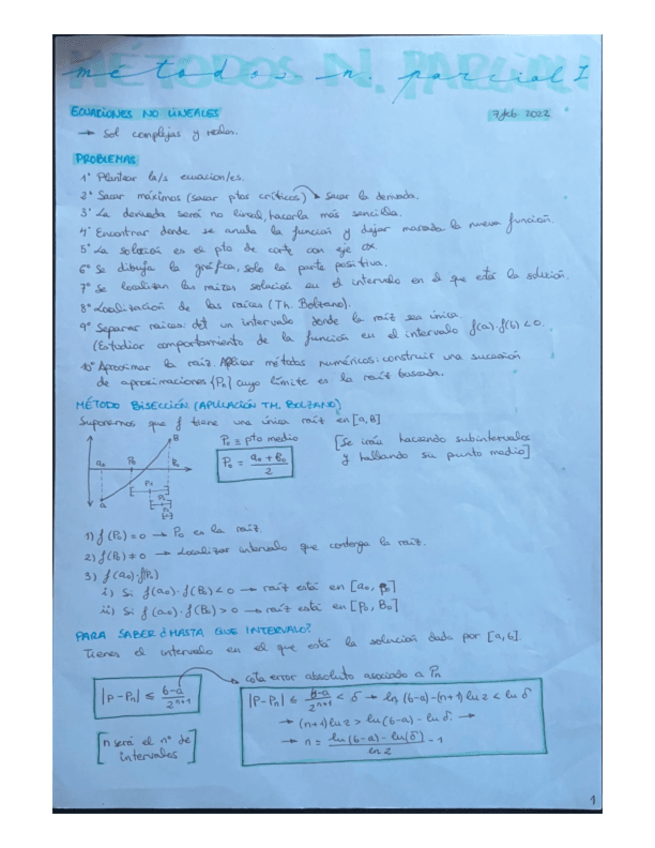 MÉTODOS N. PARCIAL I
métodos n. parcial I
ECUACIONES NO LINEALES
7 feb 2023
→ Sol complejas y reales.
PROBLEMAS
1º Plantear la/s ecuacion/es.
2º Sacar máximos (sacar ptos críticos) → Sacar la derivada.
3º La derivada será no lineal, hacerla más sencilla.
4º Encontrar donde se anula la función y dejar marcada la nueva función.
5º La solución es el pto de corte con eje OX.
6º Se dibuja la gráfica, solo la parte positiva.
7º Se localizan las raíces solución en el intervalo en el que está la solución.
8º Localización de las raíces (Th. Bolzano).
9º Separar raíces: det un intervalo donde la raíz sea única.
(Estudiar comportamiento de la función en el intervalo f(a)·f(b) < 0.
10º Aproximar la raíz. Aplicar métodos numéricos: construir una sucesión
de aproximaciones {Pn} cuyo límite es la raíz buscada.
MÉTODO BISECCIÓN (APLICACIÓN TH. BOLZANO)
Suponemos que f tiene una única raíz en [a,B]
P₀ ≡ pto medio
P₀ = (a₀ + b₀)/2
[Se irán haciendo subintervalos
y hallando su punto medio]
B
a₀ P₀ B₀
P₁
P₂
a
1) f(P₀) = 0 → P₀ es la raíz.
2) f(P₀) ≠ 0 → Localizar intervalo que contenga la raíz.
3) f(a₀)·f(P₀)
i) Si f(a₀)·f(B₀) < 0 → raíz está en [a₀, p₀]
ii) Si f(a₀)·f(B₀) > 0 → raíz está en [P₀, B₀]
PARA SABER ¿HASTA QUE INTERVALO?
Tienes el intervalo en el que está la solución dado por [a,b].
→ cota error absoluto asociado a Pn
|P-Pn| ≤ (b-a)/2ⁿ⁺¹
|P-Pn| ≤ (b-a)/2ⁿ⁺¹ < δ → ln(b-a)-(n+1)ln2 < ln δ
→ (n+1)ln2 > ln(b-a) - ln δ →
→ n = (ln(b-a) - ln(δ))/ln2 - 1
[n será el nº de
intervalos]
1